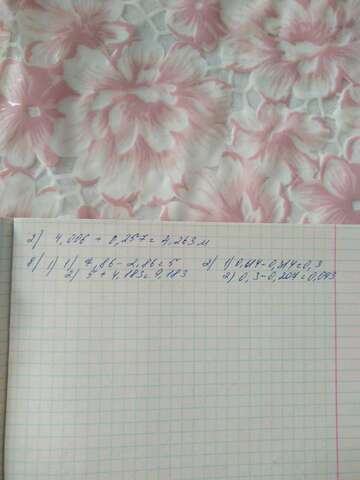 2) 4,006 + 0,257 = 4,263 м
8) 1) 1) 7,86 - 2,86 = 5 2) 1) 0,614 - 0,314 = 0,3
2) 5 + 4,183 = 9,183 2) 0,3 - 0,207 = 0,093